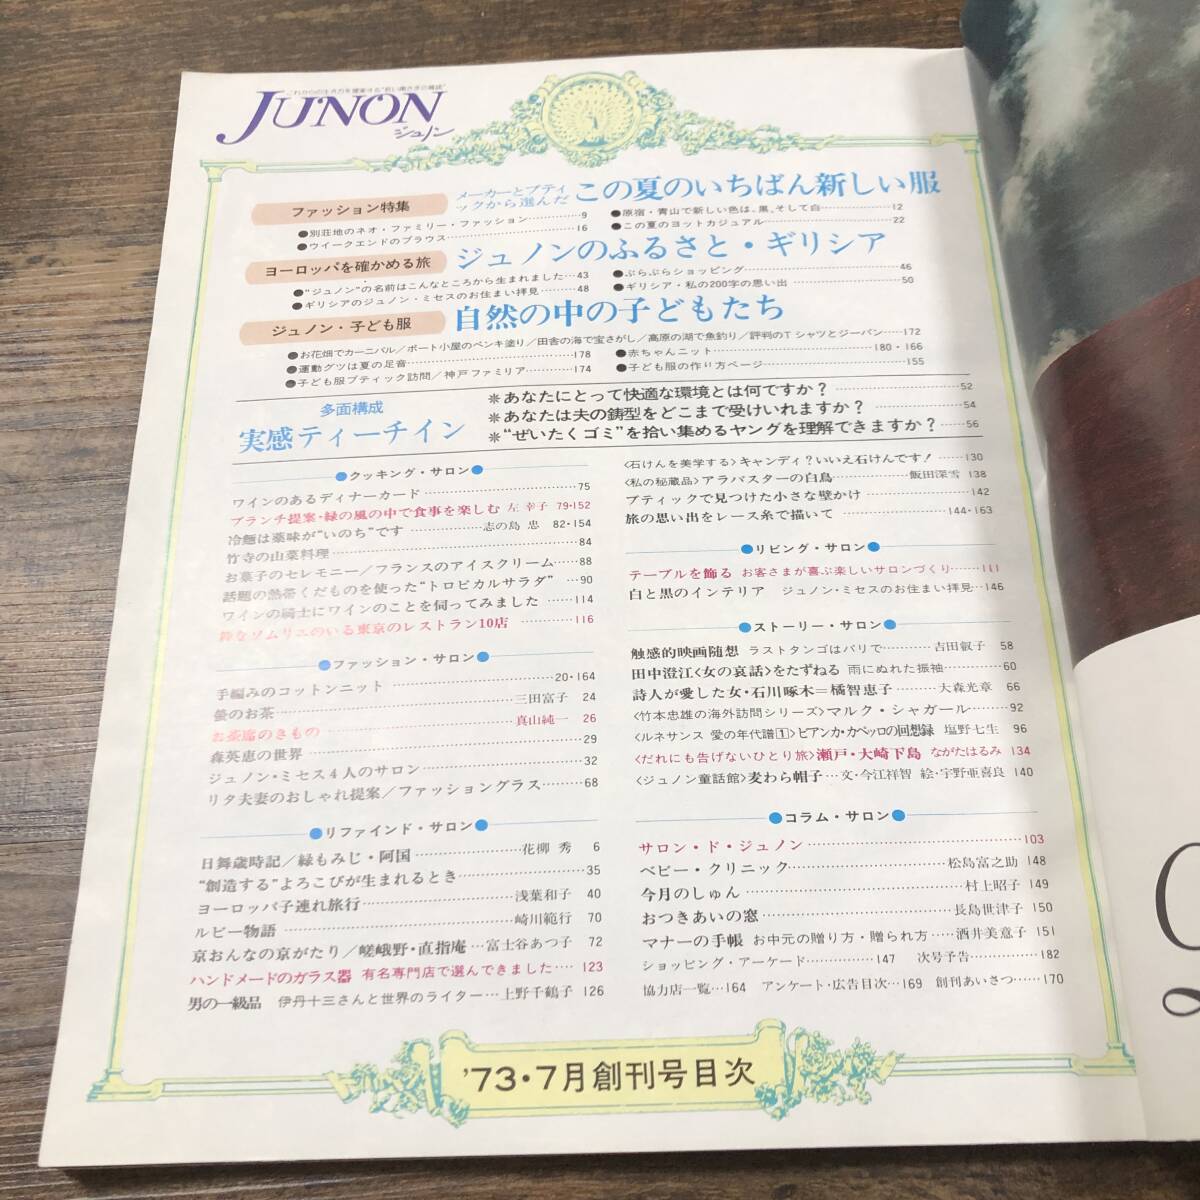 これからの生き方を提案する"若い奥さまの雑誌"
JUNON
ジュノン
ファッション特集
メーカーとブティックから選んだ この夏のいちばん新しい服
●別荘地のネオ・ファミリー・ファッション………9
●ウイークエンドのブラウス………16
●原宿・青山で新しい色は、黒、そして白………12
●この夏のヨットカジュアル………22
ヨーロッパを確かめる旅
ジュノンのふるさと・ギリシア
●"ジュノン"の名前はこんなところから生まれました…43
●ギリシアのジュノン・ミセスのお住まい拝見………48
●ぶらぶらショッピング………46
●ギリシア・私の200字の思い出………50
ジュノン・子ども服
自然の中の子どもたち
●お花畑でカーニバル／ボート小屋のペンキ塗り／田舎の海で宝さがし／高原の湖で魚釣り／評判のTシャツとジーパン……172
●運動グツは夏の足音………178
●赤ちゃんニット………180・166
●子ども服ブティック訪問／神戸ファミリア………174
●子ども服の作り方ページ………155
多面構成
実感ティーチイン
＊あなたにとって快適な環境とは何ですか？………52
＊あなたは夫の鋳型をどこまで受けいれますか？………54
＊"ぜいたくゴミ"を拾い集めるヤングを理解できますか？……56
●クッキング・サロン●
ワインのあるディナーカード………75
ブランチ提案・緑の風の中で食事を楽しむ 左 幸子 79・152
冷麺は薬味が"いのち"です………志の島 忠 82・154
竹寺の山菜料理………84
お菓子のセレモニー／フランスのアイスクリーム……88
話題の熱帯くだものを使った"トロピカルサラダ"…90
ワインの騎士にワインのことを伺ってみました……114
粋なソムリエのいる東京のレストラン10店………116
●ファッション・サロン●
手編みのコットンニット………20・164
螢のお茶………三田富子 24
お茶席のきもの………真山純一 26
森英恵の世界………29
ジュノン・ミセス4人のサロン………32
リタ夫妻のおしゃれ提案／ファッショングラス………68
●リファインド・サロン●
日舞歳時記／緑もみじ・阿国………花柳 秀 6
"創造する"よろこびが生まれるとき………35
ヨーロッパ子連れ旅行………浅葉和子 40
ルビー物語………崎川範行 70
京おんなの京がたり／嵯峨野・直指庵…富士谷あつ子 72
ハンドメードのガラス器 有名専門店で選んできました……123
男の一級品 伊丹十三さんと世界のライター…上野千鶴子 126
〈石けんを美学する〉キャンディ？いいえ石けんです！………130
〈私の秘蔵品〉アラバスターの白鳥………飯田深雪 138
ブティックで見つけた小さな壁かけ………142
旅の思い出をレース糸で描いて………144・163
●リビング・サロン●
テーブルを飾る お客さまが喜ぶ楽しいサロンづくり……111
白と黒のインテリア ジュノン・ミセスのお住まい拝見…146
●ストーリー・サロン●
触感的映画随想 ラストタンゴはパリで………吉田叡子 58
田中澄江〈女の哀話〉をたずねる 雨にぬれた振袖………60
詩人が愛した女・石川啄木＝橘智恵子………大森光章 66
〈竹本忠雄の海外訪問シリーズ〉マルク・シャガール………92
〈ルネサンス 愛の年代譜①〉ビアンカ・カペッロの回想録 塩野七生 96
〈だれにも告げないひとり旅〉瀬戸・大崎下島 ながたはるみ 134
〈ジュノン童話館〉麦わら帽子…文・今江祥智 絵・宇野亜喜良 140
●コラム・サロン●
サロン・ド・ジュノン………103
ベビー・クリニック………松島富之助 148
今月のしゅん………村上昭子 149
おつきあいの窓………長島世津子 150
マナーの手帳 お中元の贈り方・贈られ方……酒井美意子 151
ショッピング・アーケード………147 次号予告………182
協力店一覧…164 アンケート・広告目次…169 創刊あいさつ……170
'73・7月創刊号目次